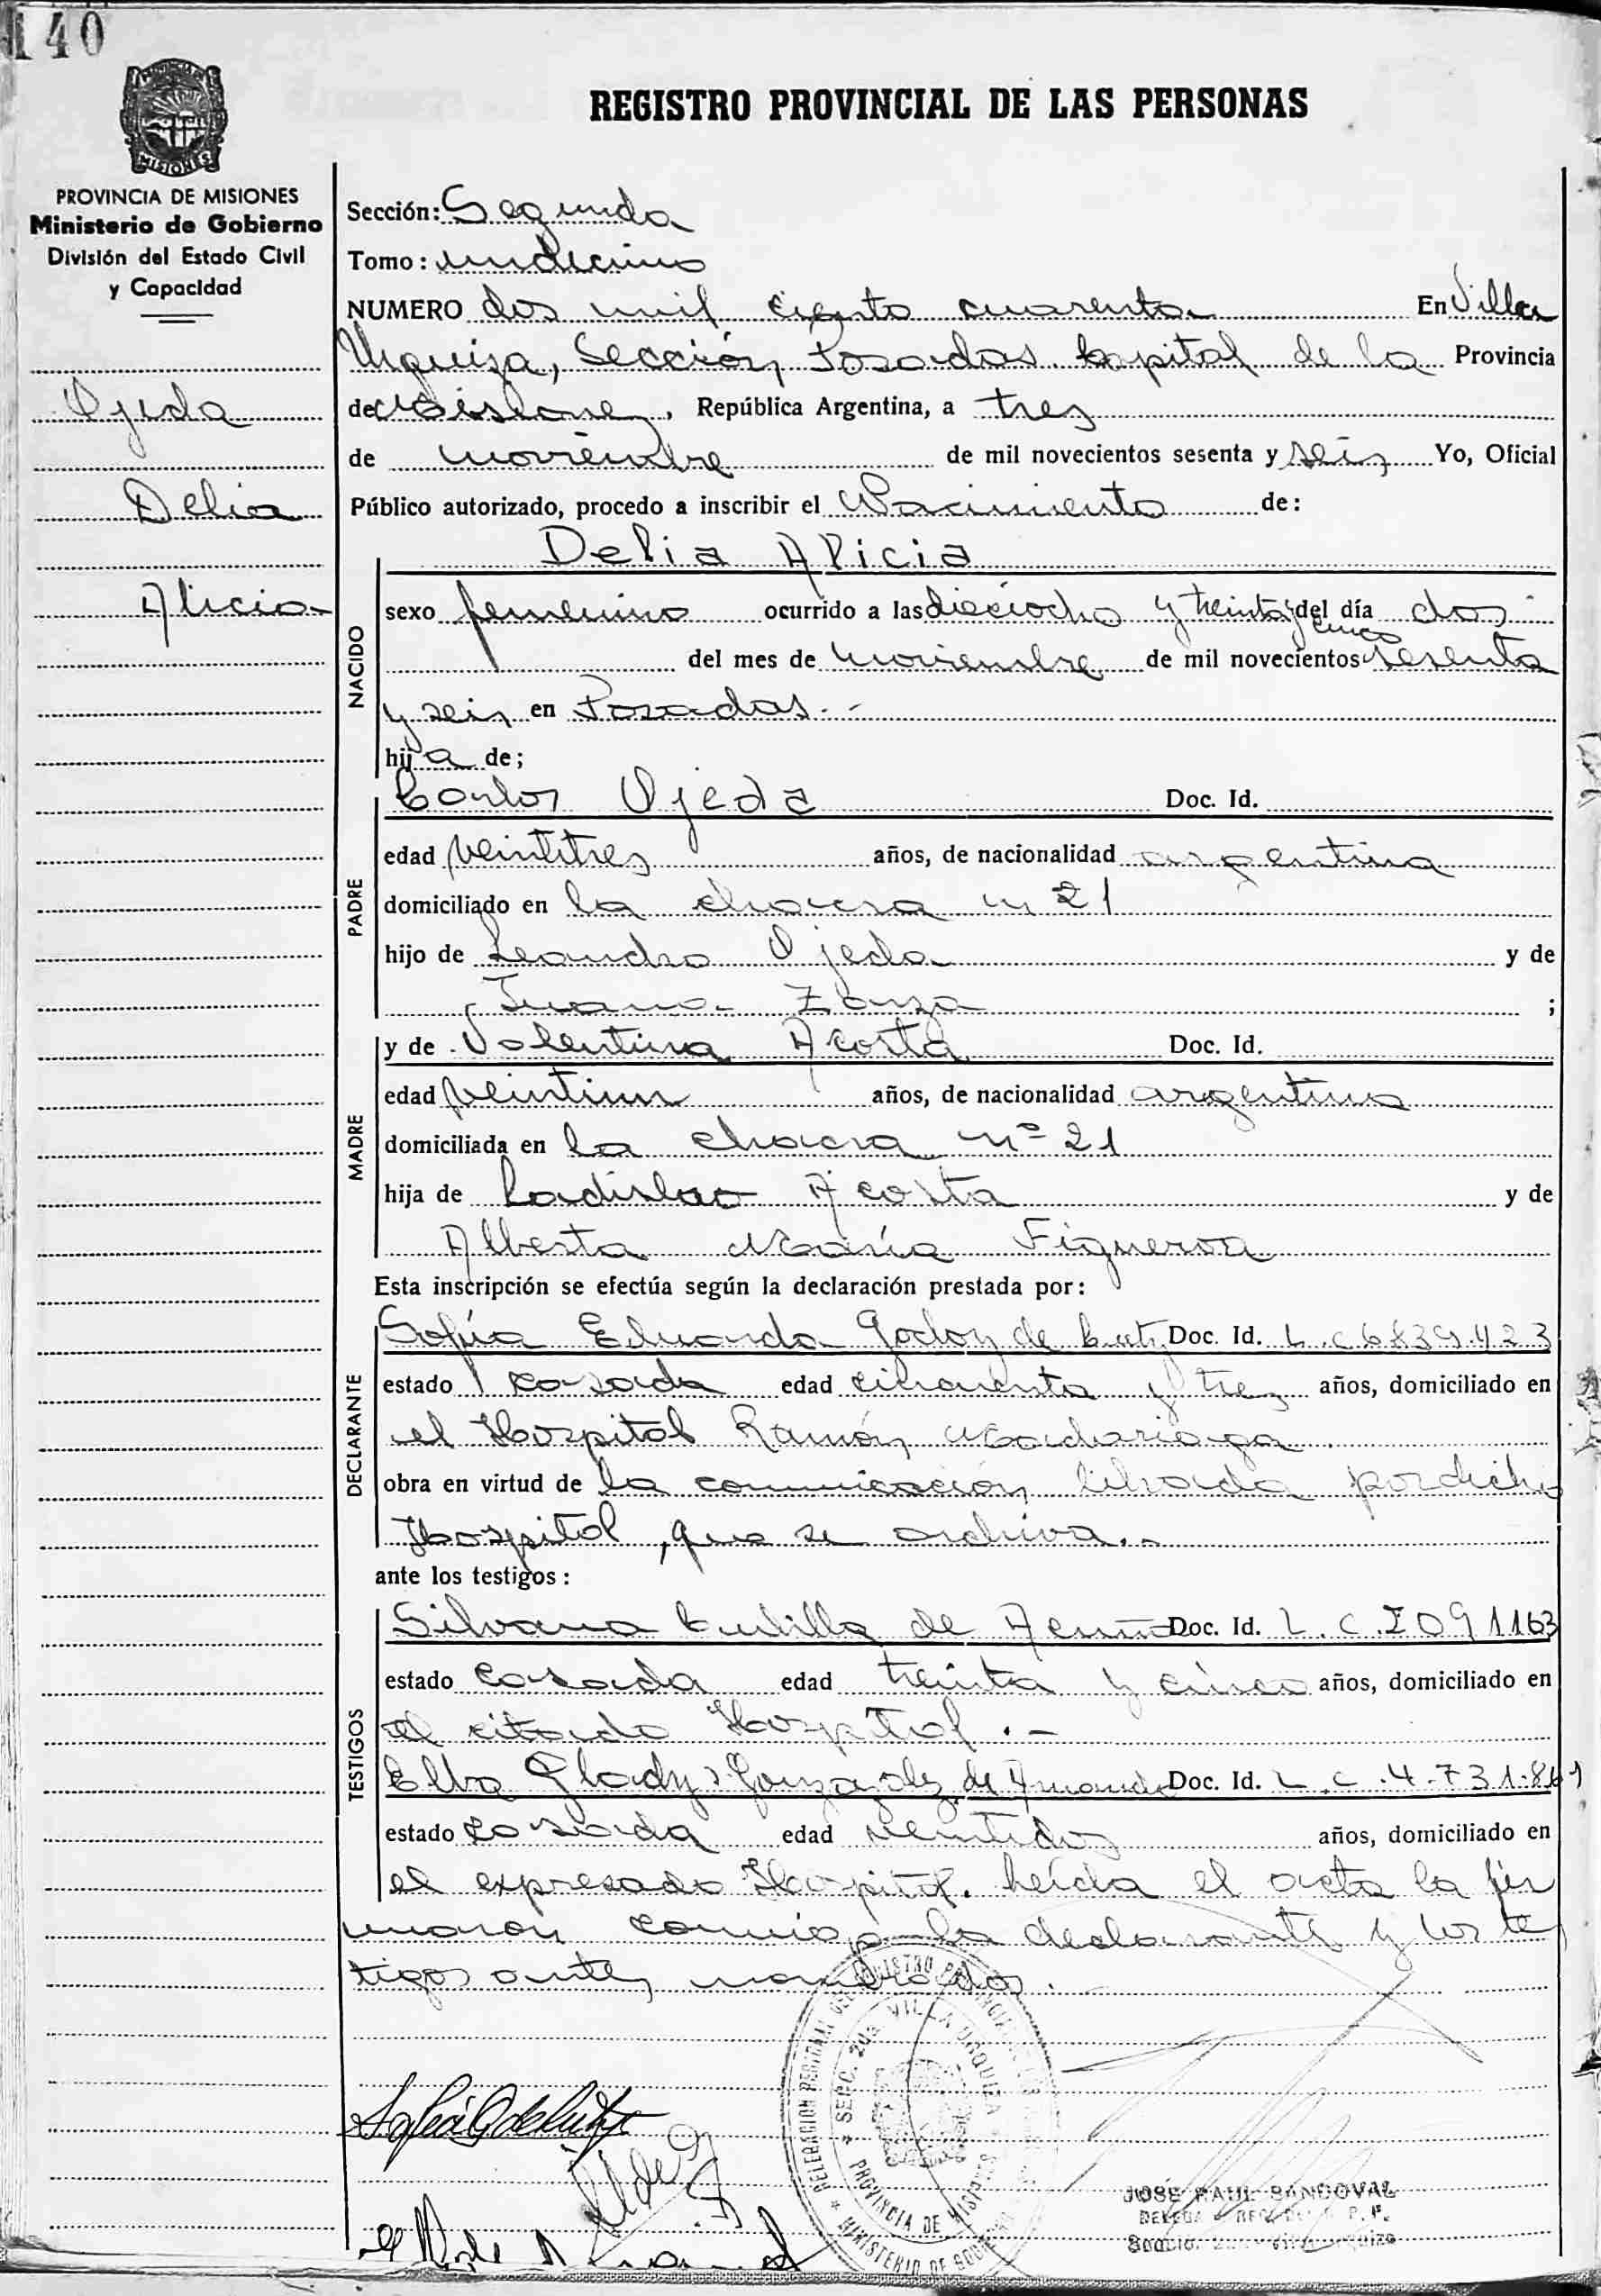 140
REGISTRO PROVINCIAL DE LAS PERSONAS
MISIONES
PROVINCIA DE MISIONES
Ministerio de Gobierno
División del Estado Civil
y Capacidad
Ojeda
Delia
Alicia
Sección: Segunda
Tomo: undecimo
NUMERO dos mil ciento cuarenta En Villa
Urquiza, Sección Posadas Capital de la Provincia
de Misiones, República Argentina, a tres
de noviembre de mil novecientos sesenta y seis Yo, Oficial
Público autorizado, procedo a inscribir el Nacimiento de:
Delia Alicia
NACIDO
sexo femenino ocurrido a las dieciocho y treinta y cinco del día dos
del mes de noviembre de mil novecientos sesenta
y seis en Posadas.-
hija de;
PADRE
Carlos Ojeda Doc. Id.
edad veintitres años, de nacionalidad argentina
domiciliado en la chacra n 21
hijo de Leandro Ojeda y de
Juana Zarza ;
MADRE
y de Valentina Acosta Doc. Id.
edad veintiun años, de nacionalidad argentina
domiciliada en la chacra nº 21
hija de Ladislao Acosta y de
Alberta María Figueroa
Esta inscripción se efectúa según la declaración prestada por:
DECLARANTE
Sofía Eduarda Godoy de Doc. Id. L.C 6.839.423
estado casada edad cincuenta y tres años, domiciliado en
el Hospital Ramón Madariaga
obra en virtud de la comunicación librada por dicho
Hospital, que se archiva.-
ante los testigos:
TESTIGOS
Silvana de Doc. Id. L.C. 2091163
estado casada edad treinta y cinco años, domiciliado en
el citado Hospital.-
Elba Glady González de Doc. Id. L.C. 4.731.861
estado casada edad veintidos años, domiciliado en
el expresado Hospital. Leída el acta la fir
maron conmigo la declarante y los te
tigos antes nombrados.
SECC. 2da VILLA URQUIZA
PROVINCIA DE MISIONES
JOSE RAUL SANDOVAL